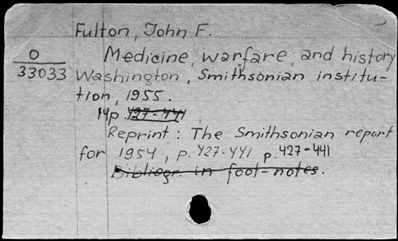 Fulton, John F.
O
33033
Medicine, warfare, and history
Washington, Smithsonian institu-
tion, 1955.
14p. 427-441
Reprint: The Smithsonian report
for 1954, p. 427-441 p. 427-441
Bibliogr. in foot-notes.